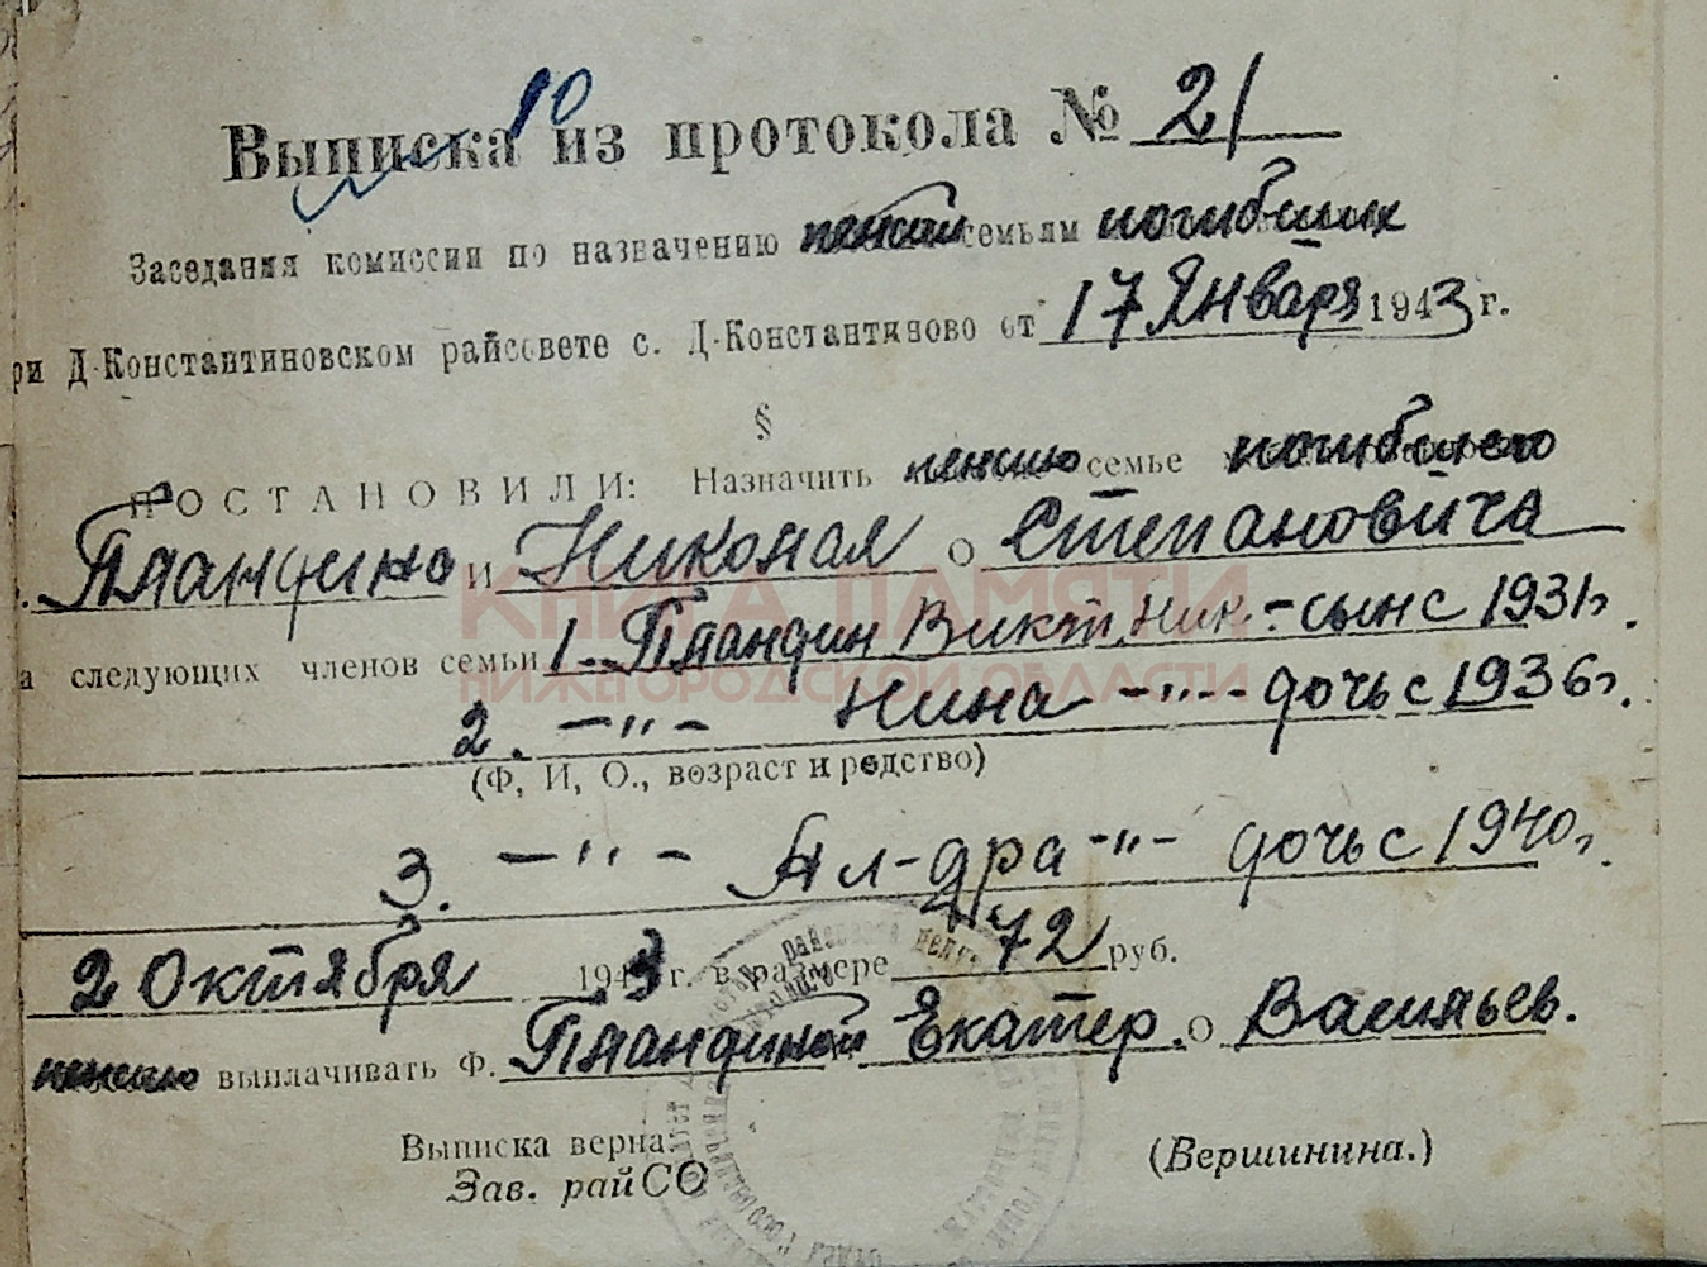 10
Выписка из протокола № 21
Заседания комиссии по назначению пенсии семьям погибших
ри Д-Константиновском райсовете с. Д-Константиново от 17 Января 1943 г.
§
ПОСТАНОВИЛИ: Назначить пенсию семье погибшего
. Пландина И Николая О Степановича
КНИГА ПАМЯТИ
а следующих членов семьи 1. Пландин Викт. Ник. - сын с 1931 г.
НИЖЕГОРОДСКОЙ ОБЛАСТИ
2. -"- Нина -"- дочь с 1936 г.
(Ф, И, О., возраст и родство)
3. -"- Ал-дра -"- дочь с 1940 г.
2 Октября 1943 г. в размере 72 руб.
пенсию выплачивать Ф. Пландиной Екатер. О Васильев.
Выписка верна:
Зав. райСО (Вершинина.)